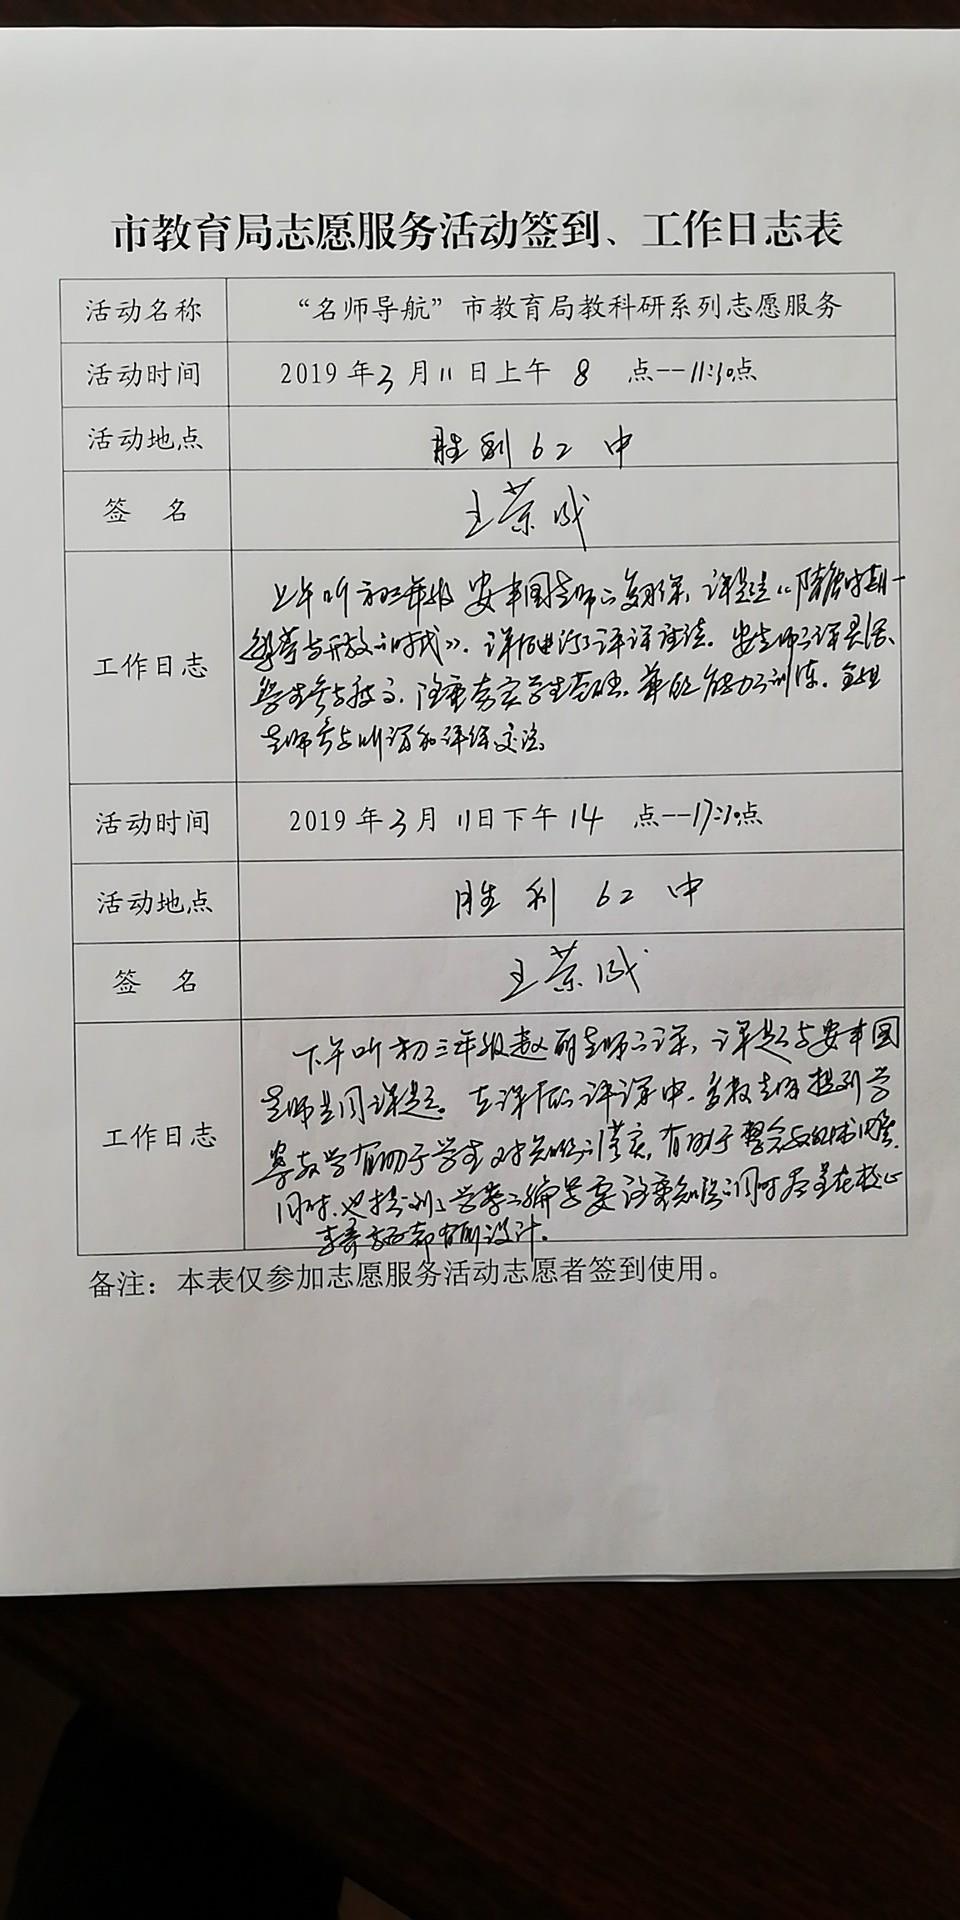 市教育局志愿服务活动签到、工作日志表
活动名称 “名师导航”市教育局教科研系列志愿服务
活动时间 2019年3月11日上午 8 点--11:30点
活动地点 胜利62中
签 名 王荣成
工作日志
上午听初三年级安丰国老师的复习课,课题是《隋唐时期—
繁荣与开放的时代》.课后进行了评课座谈。安老师的课灵活、
学生参与积极,注重夯实学生基础,兼顾能力的训练。全组
老师参与听课和评课交流。
活动时间 2019年3月11日下午14 点--17:30点
活动地点 胜利62中
签 名 王荣成
工作日志
下午听初三年级赵丽老师的课,课题与安丰国
老师是同课题。在课后的评课中,多数老师提到学
案教学有助于学生对知识的落实,有助于
同时,也提到了学案的编写要注重知识的同时尽量在核心
素养方面都有所设计。
备注：本表仅参加志愿服务活动志愿者签到使用。